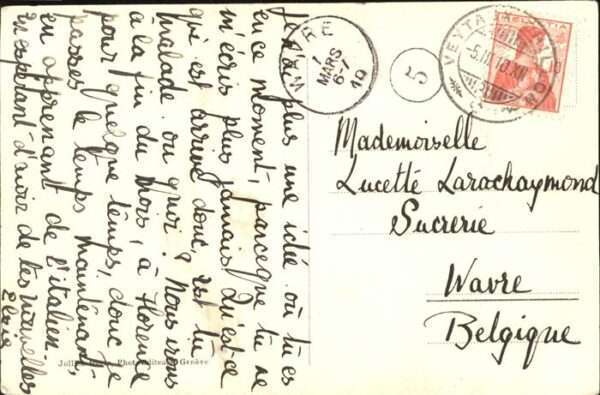 Je n'ai plus une idée où tu es
en ce moment, parceque tu ne
m'écris plus jamais. Qu'est-ce
qui est arrivé donc, es tu
malade ou quoi? Nous irons
à la fin du mois, à Florence
pour quelque temps, donc je
passes le temps maintenant,
en apprenant de l'italien.
En espérant d'avoir de tes nouvelles
Elsie
WAVRE
7
MARS
6-7
10
5
VEYTAUX-CHILLON
-5.III.10.XII
HELVETIA
10
Mademoiselle
Lucette Larachaymond
Sucrerie
Wavre
Belgique
Jullien frères, Phot.-éditeurs, Genève